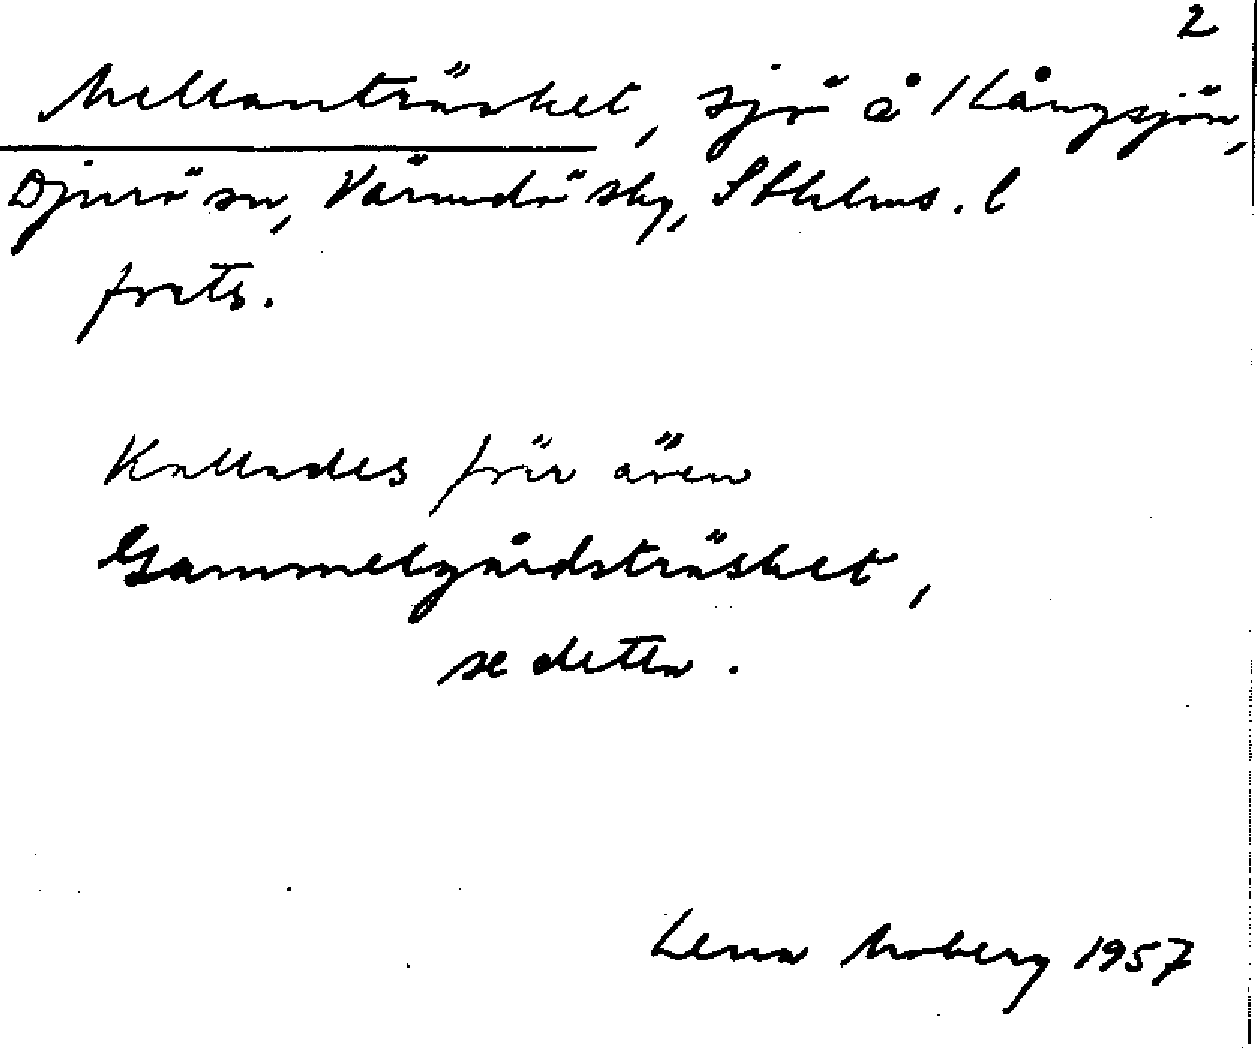 2
Mellanträsket, sjö å Kångsjön,
Djurö sn, Värmdö sky, Sthlms. l
forts.
Kallades förr även
Gammelgårdsträsket,
se detta.
Lena Moberg 1957